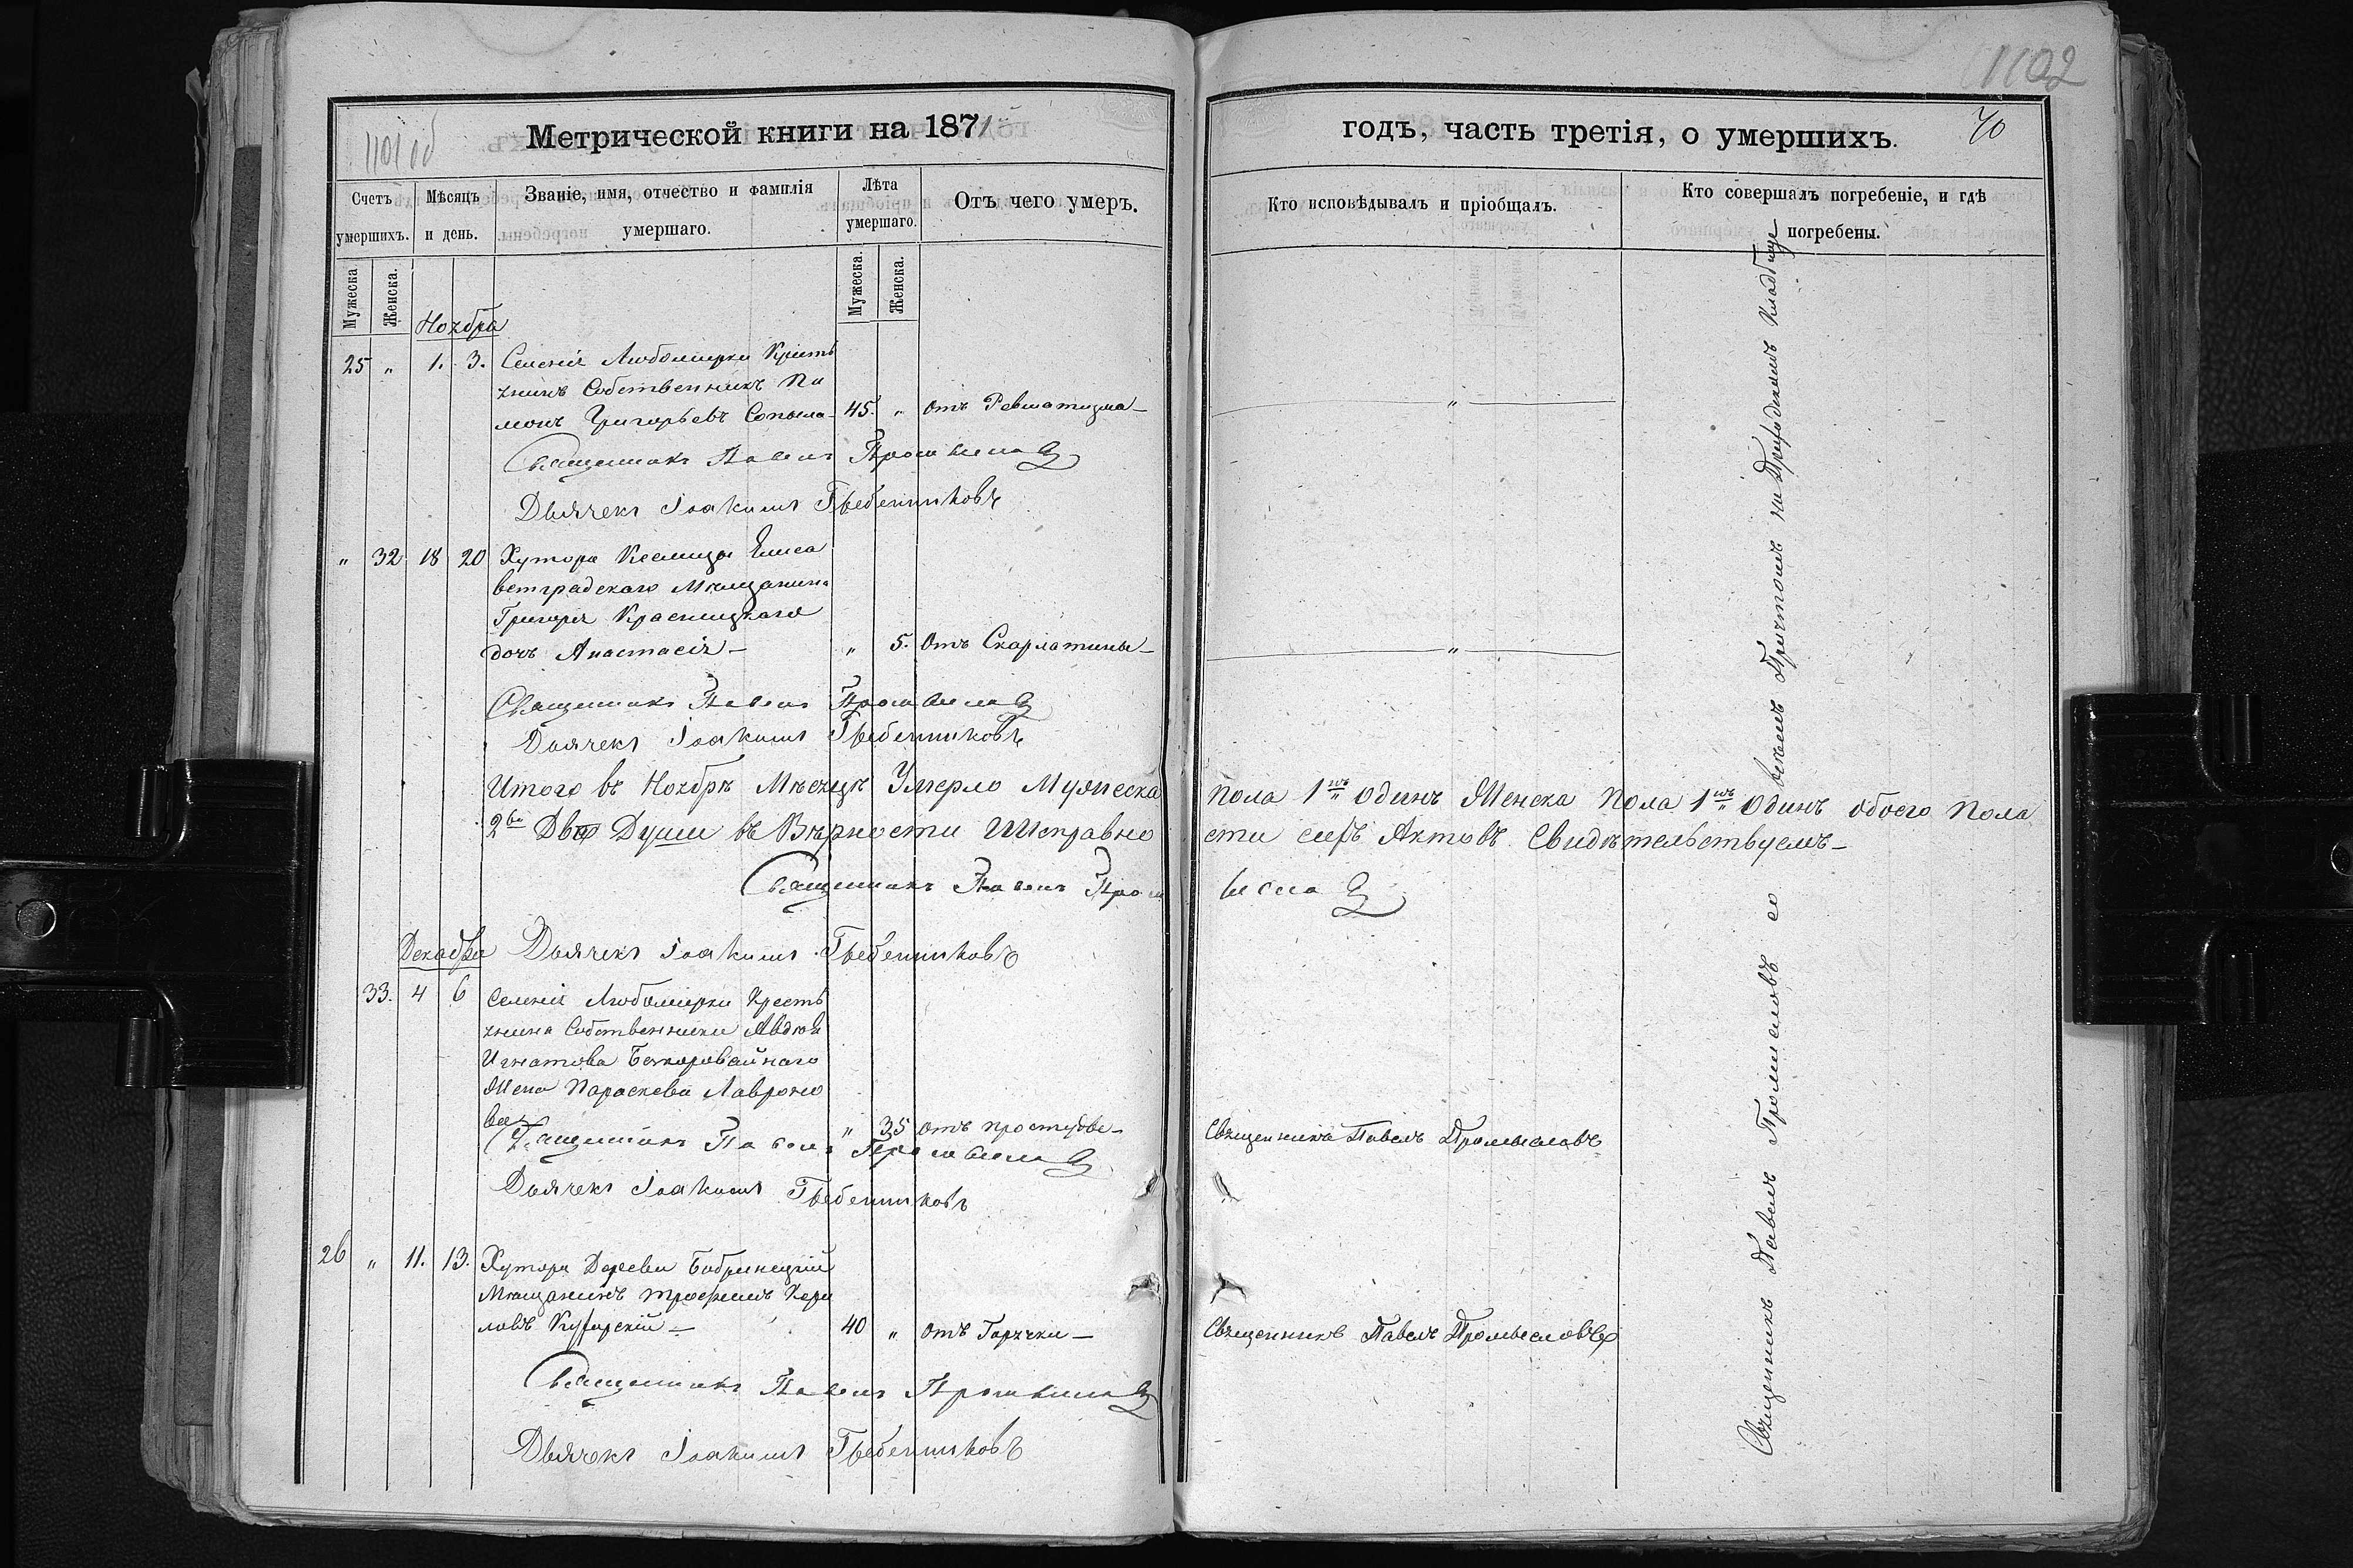 1101 об
Метрической книги на 1871
Счетъ умершихъ.
Мѣсяцъ и день.
Званіе, имя, отчество и фамилія умершаго.
Лѣта умершаго.
Отъ чего умеръ.
Мужеска
Женска.
Мужеска.
Женска.
Ноября
25 " 1. 3. Селенія Любомирки Кресть
янинъ Собственникъ Пи
монъ Григорьевъ 45. " Отъ Ревматизма
Священникъ Павелъ Промысловъ
Дьячекъ Іоакимъ Гребенниковъ
" 32 18 20 Хутора Елиса
ветградскаго Мѣщанина
Григорія Красницкаго
дочь Анастасія " 5. Отъ Скарлатины
Священникъ Павелъ Промысловъ
Дьячекъ Іоакимъ Гребенниковъ
Итого въ Ноябрѣ Мѣсяцѣ Умерло Мужеска
2ва Два Души въ Вѣрности и Исправно
Священникъ Павелъ Пром
Декабря Дьячекъ Іоакимъ Гребенниковъ
33. 4 6 Селенія Любомирки Кресть
янина Собственника Авдѣя
Игнатова Бекоровайнаго
Жена Параскева Лавроно
ва " 35 отъ простуды
Священникъ Павелъ Промысловъ
Дьячекъ Іоакимъ Гребенниковъ
26 " 11. 13. Хутора Бобринецкій
Мѣщанинъ Трофимъ Кори
ловъ 40 " Отъ Горячки
Священникъ Павелъ Промысловъ
Дьячекъ Іоакимъ Гребенниковъ
1102
годъ, часть третія, о умершихъ.
70
Кто исповѣдывалъ и пріобщалъ.
Кто совершалъ погребеніе, и гдѣ погребены.
"
"
пола 1нъ Одинъ Женска пола 1нъ Одинъ обоего пола
сти сихъ Актовъ Свидѣтельствуемъ
ысловъ
Священникъ Павелъ Промысловъ
Священникъ Павелъ Промысловъ
Священникъ Павелъ Промысловъ со всѣмъ Причтомъ на Приходскомъ Кладбище